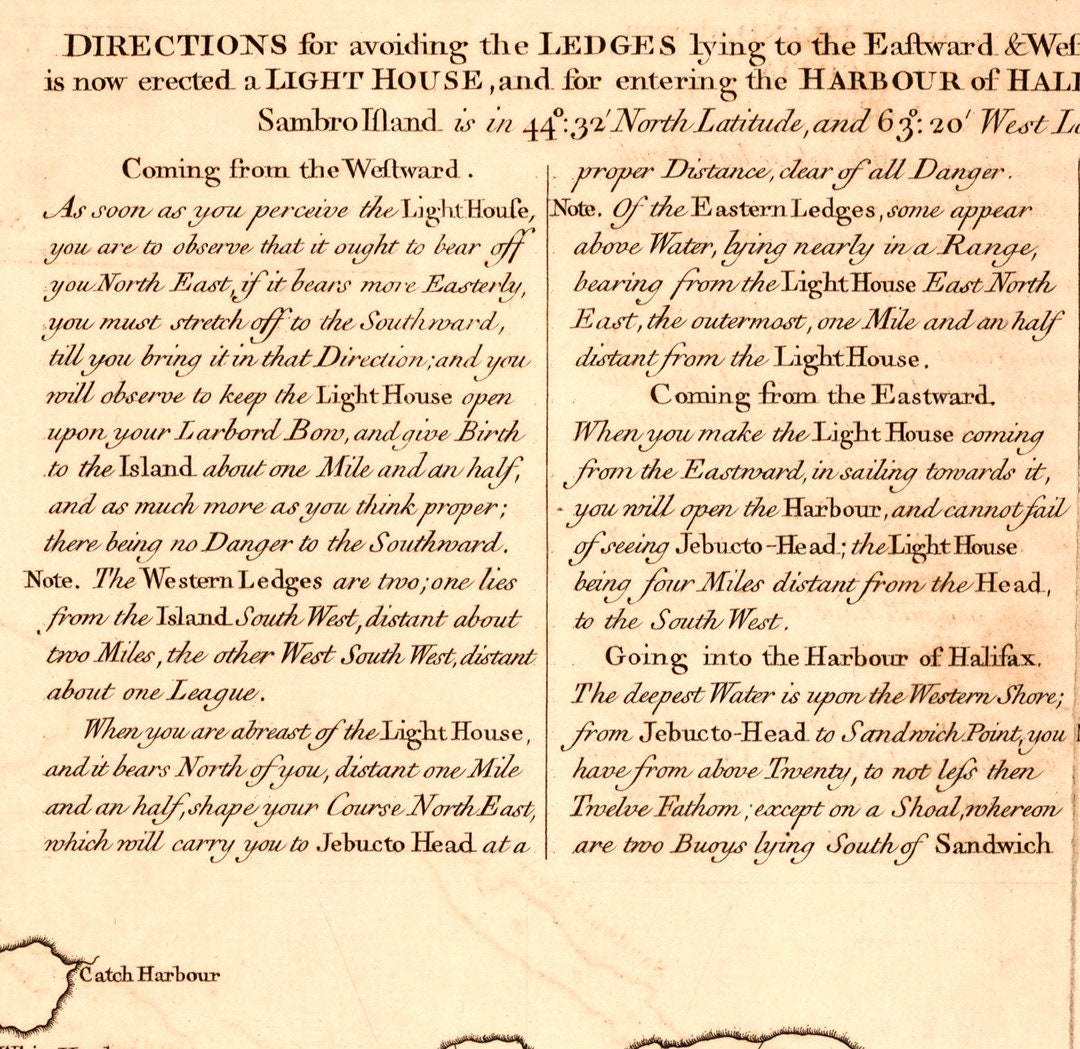 DIRECTIONS for avoiding the LEDGES lying to the Eaſtward & Weſ
is now erected a LIGHT HOUSE, and for entering the HARBOUR of HALI
Sambro Iſland is in 44°:32' North Latitude, and 63°:20' West Lo
Coming from the Weſtward.
As soon as you perceive the Light Houſe,
you are to observe that it ought to bear off
you North East, if it bears more Easterly,
you must stretch off to the Southward,
till you bring it in that Direction; and you
will observe to keep the Light House open
upon your Larbord Bow, and give Birth
to the Island about one Mile and an half,
and as much more as you think proper;
there being no Danger to the Southward.
Note. The Western Ledges are two; one lies
from the Island South West, distant about
two Miles, the other West South West, distant
about one League.
When you are abreast of the Light House,
and it bears North of you, distant one Mile
and an half, shape your Course North East,
which will carry you to Jebucto Head at a
proper Distance, clear of all Danger.
Note. Of the Eastern Ledges, some appear
above Water, lying nearly in a Range,
bearing from the Light House East North
East, the outermost, one Mile and an half
distant from the Light House.
Coming from the Eastward.
When you make the Light House coming
from the Eastward, in sailing towards it,
you will open the Harbour, and cannot fail
of seeing Jebucto-Head; the Light House
being four Miles distant from the Head,
to the South West.
Going into the Harbour of Halifax.
The deepest Water is upon the Western Shore;
from Jebucto-Head to Sandwich Point, you
have from above Twenty, to not leſs then
Twelve Fathom; except on a Shoal, whereon
are two Buoys lying South of Sandwich
Catch Harbour